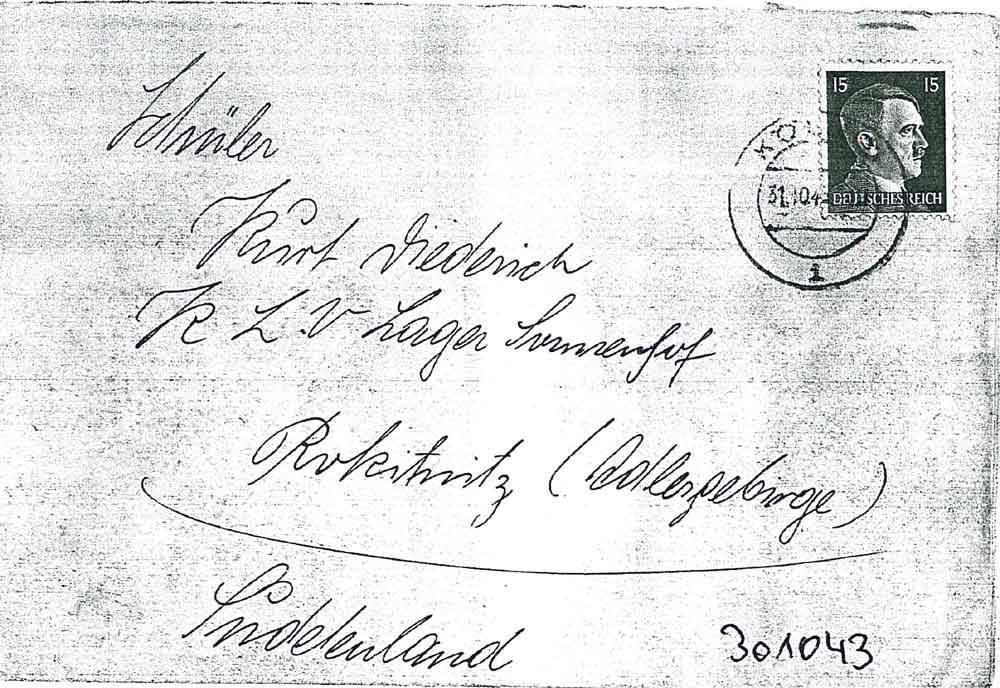 15 15
DEUTSCHES REICH
31.10.4
1
Schüler
Kurt Diederich
K L.V Lager Sonnenhof
Rokitnitz (Adlergebirge)
Sudetenland
301043